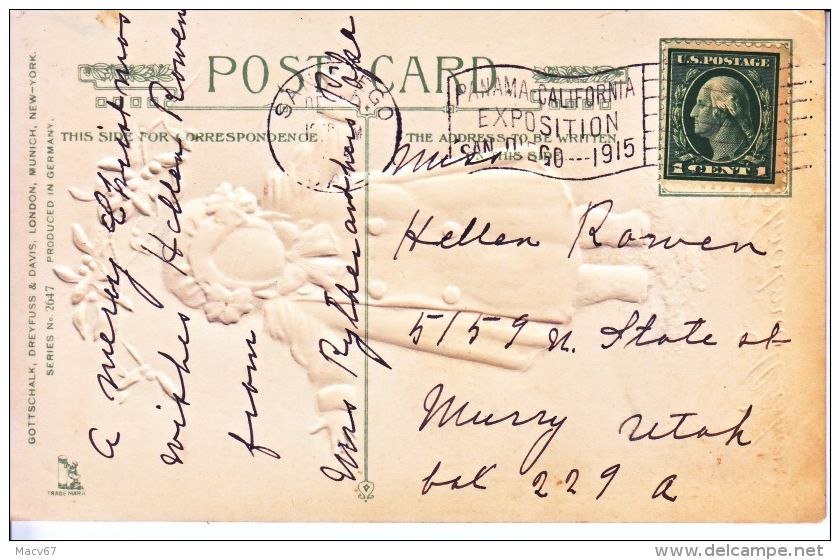 POST CARD
THIS SIDE FOR CORRESPONDENCE.
THE ADDRESS TO BE WRITTEN
ON THIS SIDE
GOTTSCHALK, DREYFUSS & DAVIS, LONDON, MUNICH, NEW-YORK.
SERIES No. 2647 PRODUCED IN GERMANY.
TRADE MARK
A merry Christmas
wishes Hellen Rowen
from
Mrs
SAN DIEGO
PANAMA-CALIFORNIA
EXPOSITION
SAN DIEGO---1915
U.S. POSTAGE
1 CENT 1
Miss
Hellen Rowen
5159 N. State st
Murry Utah
box 229 A
Macv67
delcampe.net